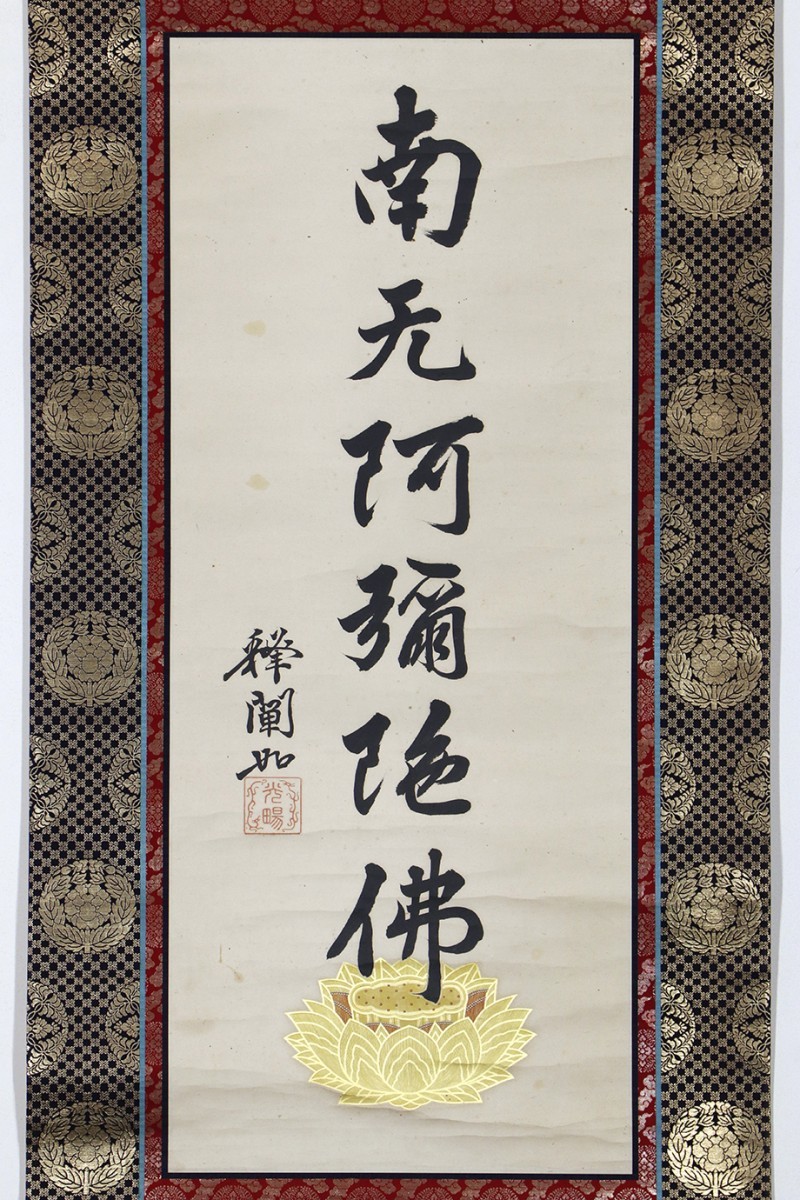 南无阿彌陁佛
釋闡如
光暢